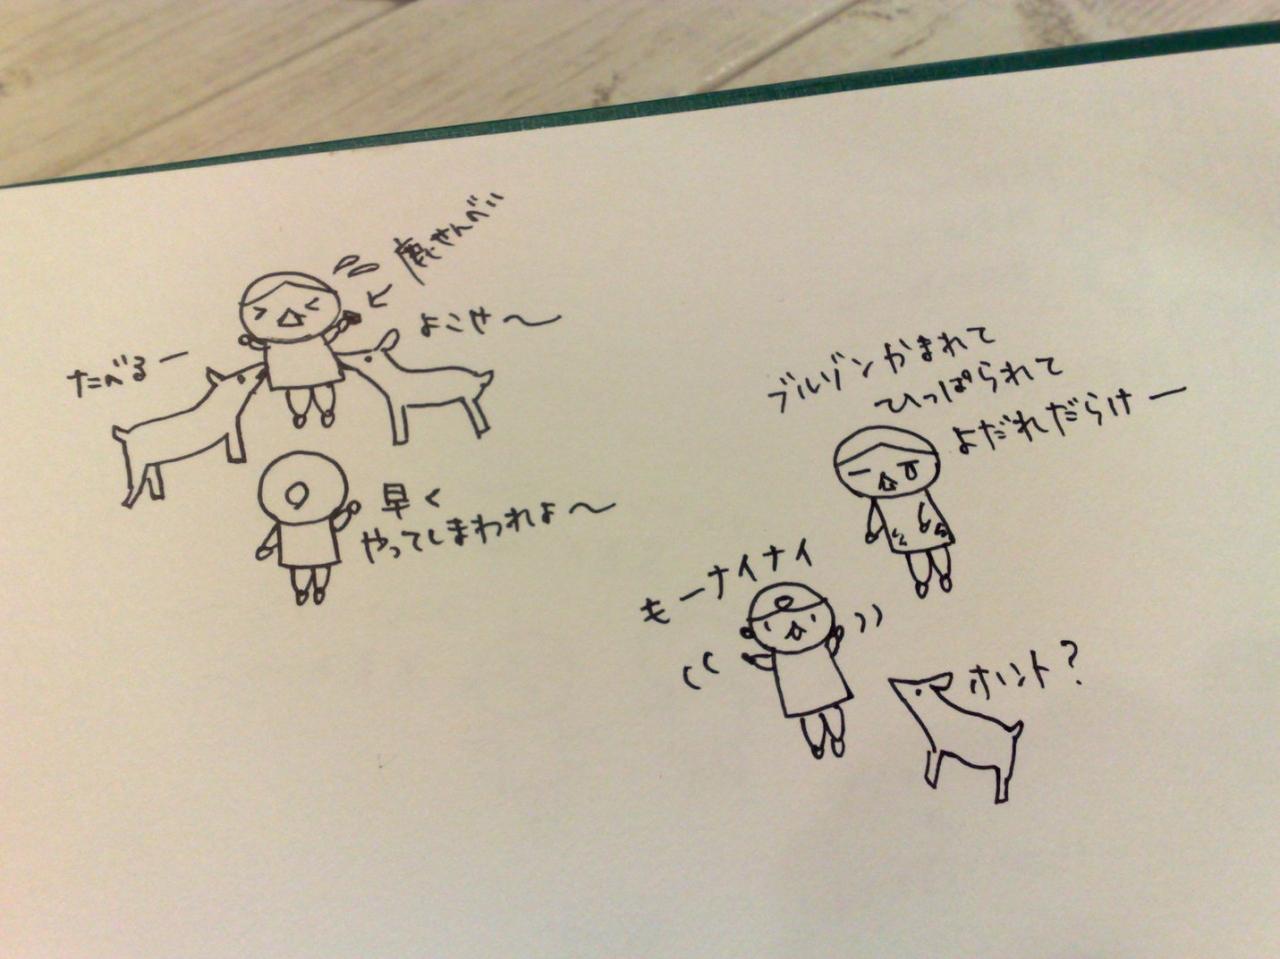 鹿せんべい
よこせ〜
たべるー
早く
やってしまわれよ〜
ブルゾンかまれて
ひっぱられて
よだれだらけー
もーナイナイ
ホント?